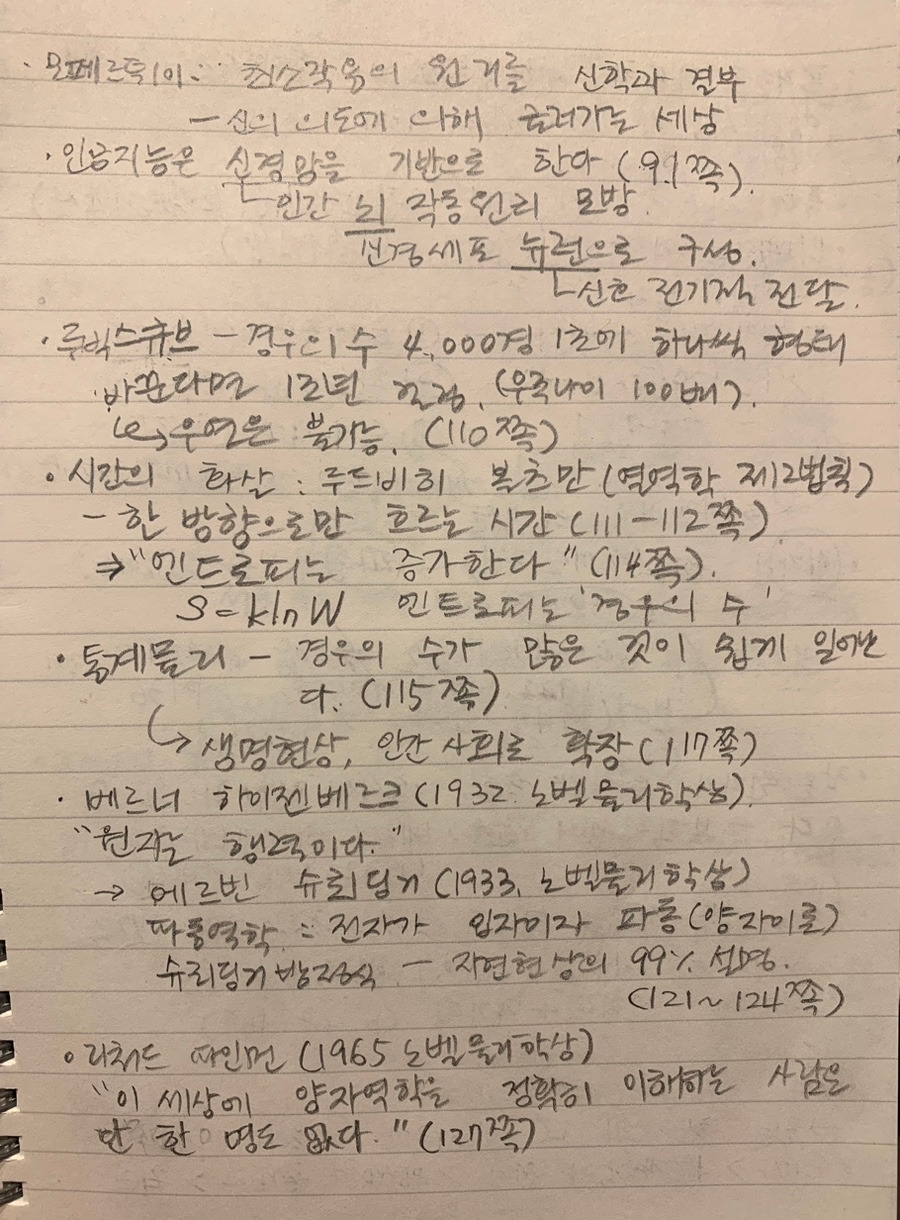 · 모페르튀이: 최소작용의 원리를 신학과 결부
- 신의 의도에 의해 굴러가는 세상
· 인공지능은 신경망을 기반으로 한다 (91쪽).
인간 뇌 작동원리 모방.
신경세포 뉴런으로 구성.
신호 전기적 전달.
· 루빅스큐브 - 경우의 수 4,000경 1초에 하나씩 형태
바꾼다면 1조년 걸림. (우주나이 100배).
↳ 우연은 불가능. (110쪽)
· 시간의 화살 : 루드비히 볼츠만 (열역학 제2법칙)
- 한 방향으로만 흐르는 시간 (111-112쪽)
⇒ "엔트로피는 증가한다" (114쪽).
S = klnW 엔트로피는 '경우의 수'
· 통계물리 - 경우의 수가 많은 것이 쉽게 일어난
다. (115쪽)
↳ 생명현상, 인간 사회로 확장 (117쪽)
· 베르너 하이젠베르크 (1932. 노벨물리학상).
"원자는 행렬이다."
→ 에르빈 슈뢰딩거 (1933. 노벨물리학상)
파동역학 : 전자가 입자이자 파동 (양자이론)
슈뢰딩거 방정식 - 자연현상의 99% 설명.
(121~124쪽)
· 리처드 파인먼 (1965 노벨물리학상)
"이 세상에 양자역학을 정확히 이해하는 사람은
단 한 명도 없다." (127쪽)